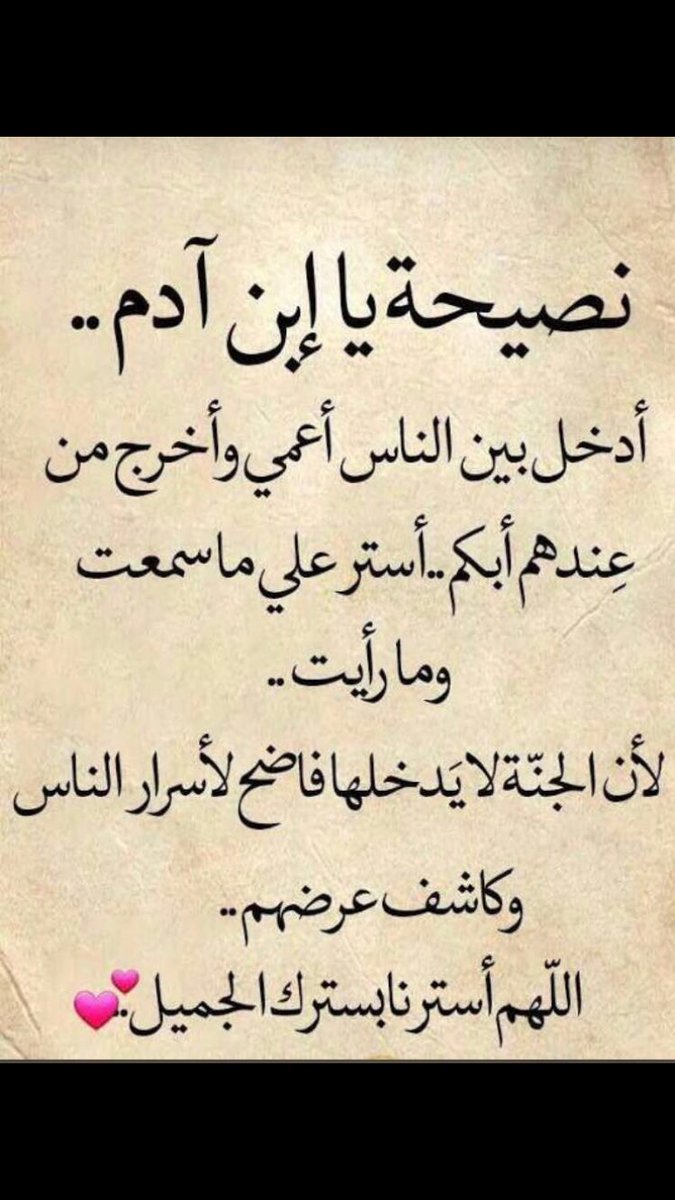 نصيحة يا إبن آدم ..
أدخل بين الناس أعمي وأخرج من
عِندهم أبكم .. أستر علي ما سمعت
وما رأيت ..
لأن الجنّة لا يَدخلها فاضح لأسرار الناس
وكاشف عرضهم ..
اللّهم أسترنا بسترك الجميل ..